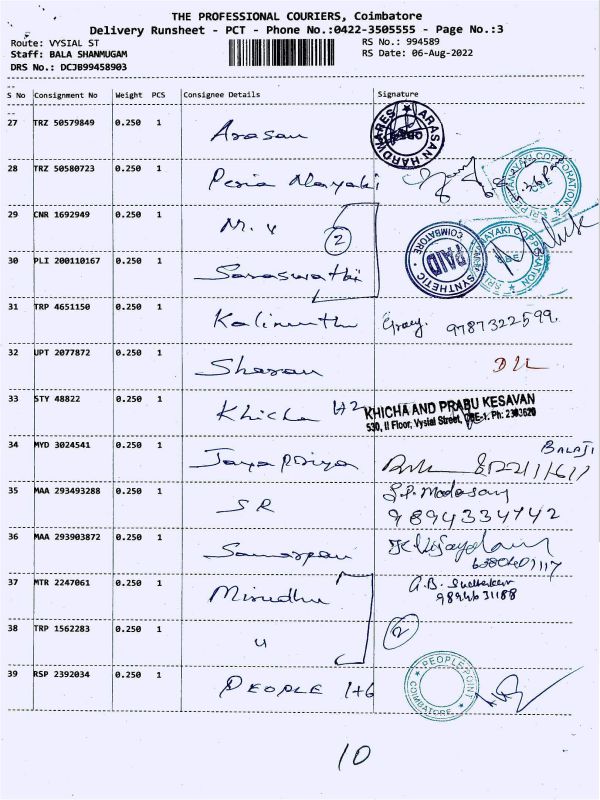 THE PROFESSIONAL COURIERS, Coimbatore
Delivery Runsheet - PCT - Phone No.:0422-3505555 - Page No.:3
Route: VYSIAL ST RS No.: 994589
Staff: BALA SHANMUGAM RS Date: 06-Aug-2022
DRS No.: DCJB99458903
S No Consignment No Weight PCS Consignee Details Signature
27 TRZ 50579849 0.250 1 Arasan ARASAN HARDWARES CBE
28 TRZ 50580723 0.250 1 Peria Nayaki
29 CNR 1692949 0.250 1 M. V
2
30 PLI 200110167 0.250 1 Saraswathi COIMBATORE PAID SYNTHETIC
31 TRP 4651150 0.250 1 Kalimuthu 9787322599.
32 UPT 2077872 0.250 1 Sharan
33 STY 48822 0.250 1 Khicha 1+2 KHICHA AND PRABU KESAVAN
530, II Floor, Vysial Street, CBE-1. Ph: 2303620
34 MYD 3024541 0.250 1 Jayapriya BALAJI
35 MAA 293493288 0.250 1 S R S.P. Madasamy
9894334742
36 MAA 293903872 0.250 1 Samarpan
37 MTR 2247061 0.250 1 Mirudhu A.B. Sudhakar
38 TRP 1562283 0.250 1 u 2
39 RSP 2392034 0.250 1 PEOPLE 1+6 PEOPLE POINT COIMBATORE
10